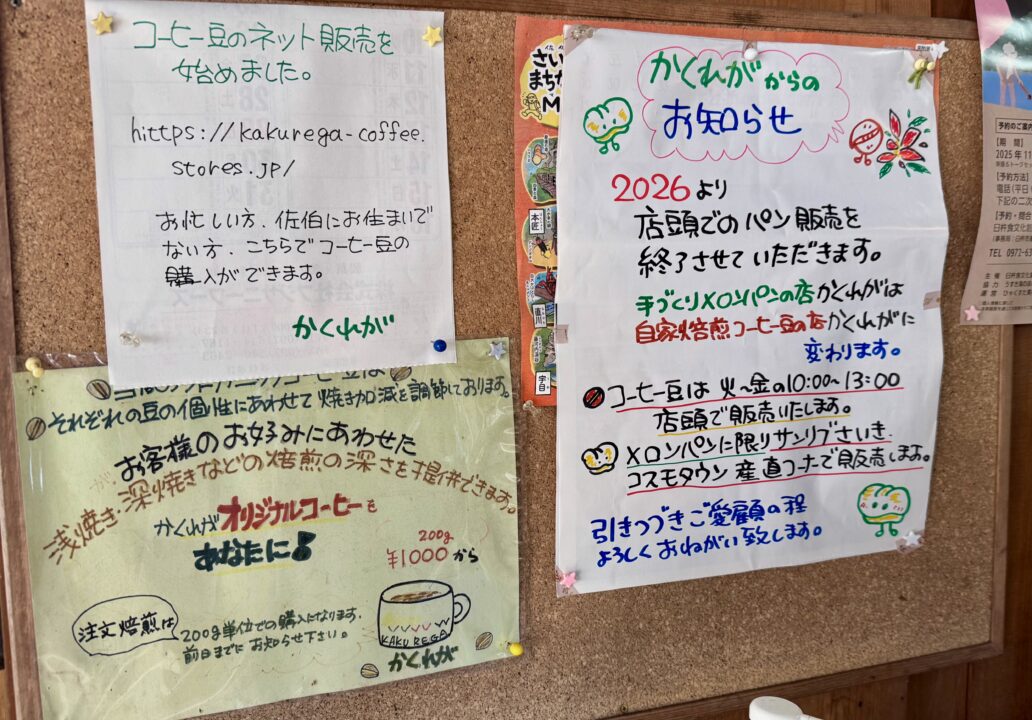 コーヒー豆のネット販売を
始めました。
hittps://kakurega-coffee.
stores.jp/
お忙しい方、佐伯にお住まいで
ない方、こちらでコーヒー豆の
購入ができます。
かくれが
それぞれの豆の個性にあわせて焼き加減を調節しております。
お客様のお好みにあわせた
浅焼き・深焼きなどの焙煎の深さを提供できます。
かくれがオリジナルコーヒーを
あなたに♪
200g
¥1000から
注文焙煎は
200g単位での購入になります。
前日までにお知らせ下さい。
KAKUREGA
かくれが
さい
まちか
本匠
直川
宇目
かくれがからの
お知らせ
2026より
店頭でのパン販売を
終了させていただきます。
手づくりメロンパンの店かくれがは
自家焙煎コーヒー豆の店かくれがに
変わります。
コーヒー豆は 火〜金の10:00〜13:00
店頭で販売いたします。
メロンパンに限りサンリブさいき、
コスモタウン産直コーナで販売します。
引きつづきご愛顧の程
よろしくおねがい致します。
予約のご案内
【期 間】
2025年11
【予約方法】
電話(平日
下記の二次
【予約・問合
臼杵食文化創
TEL 0972-63
主 催 臼杵食文化
協 力
運 営